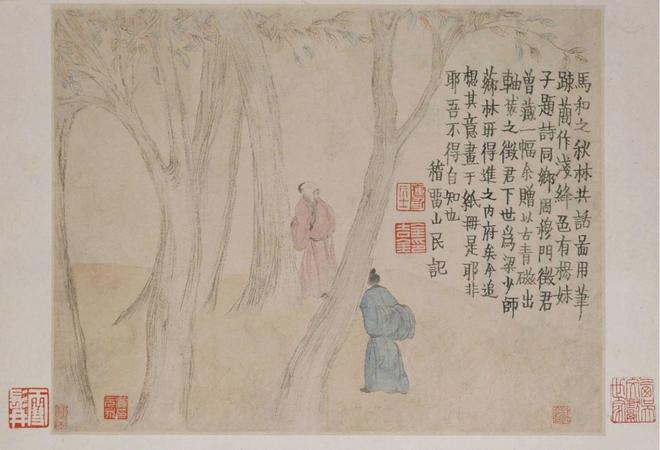 馬和之秋林共話啚用筆
踈蕳作淺絳色有楊妹
子題詩同鄉周穆門徵君
曾藏一幅余贈以古青磁出
軸裝之徵君下世㠯為梁少師
薌林所得進之内府矣今追
想其意畫于紙冊是耶非
耶吾不得自知也
稽畱山民記